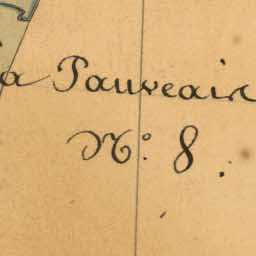 a Pauveair
N.º 8.